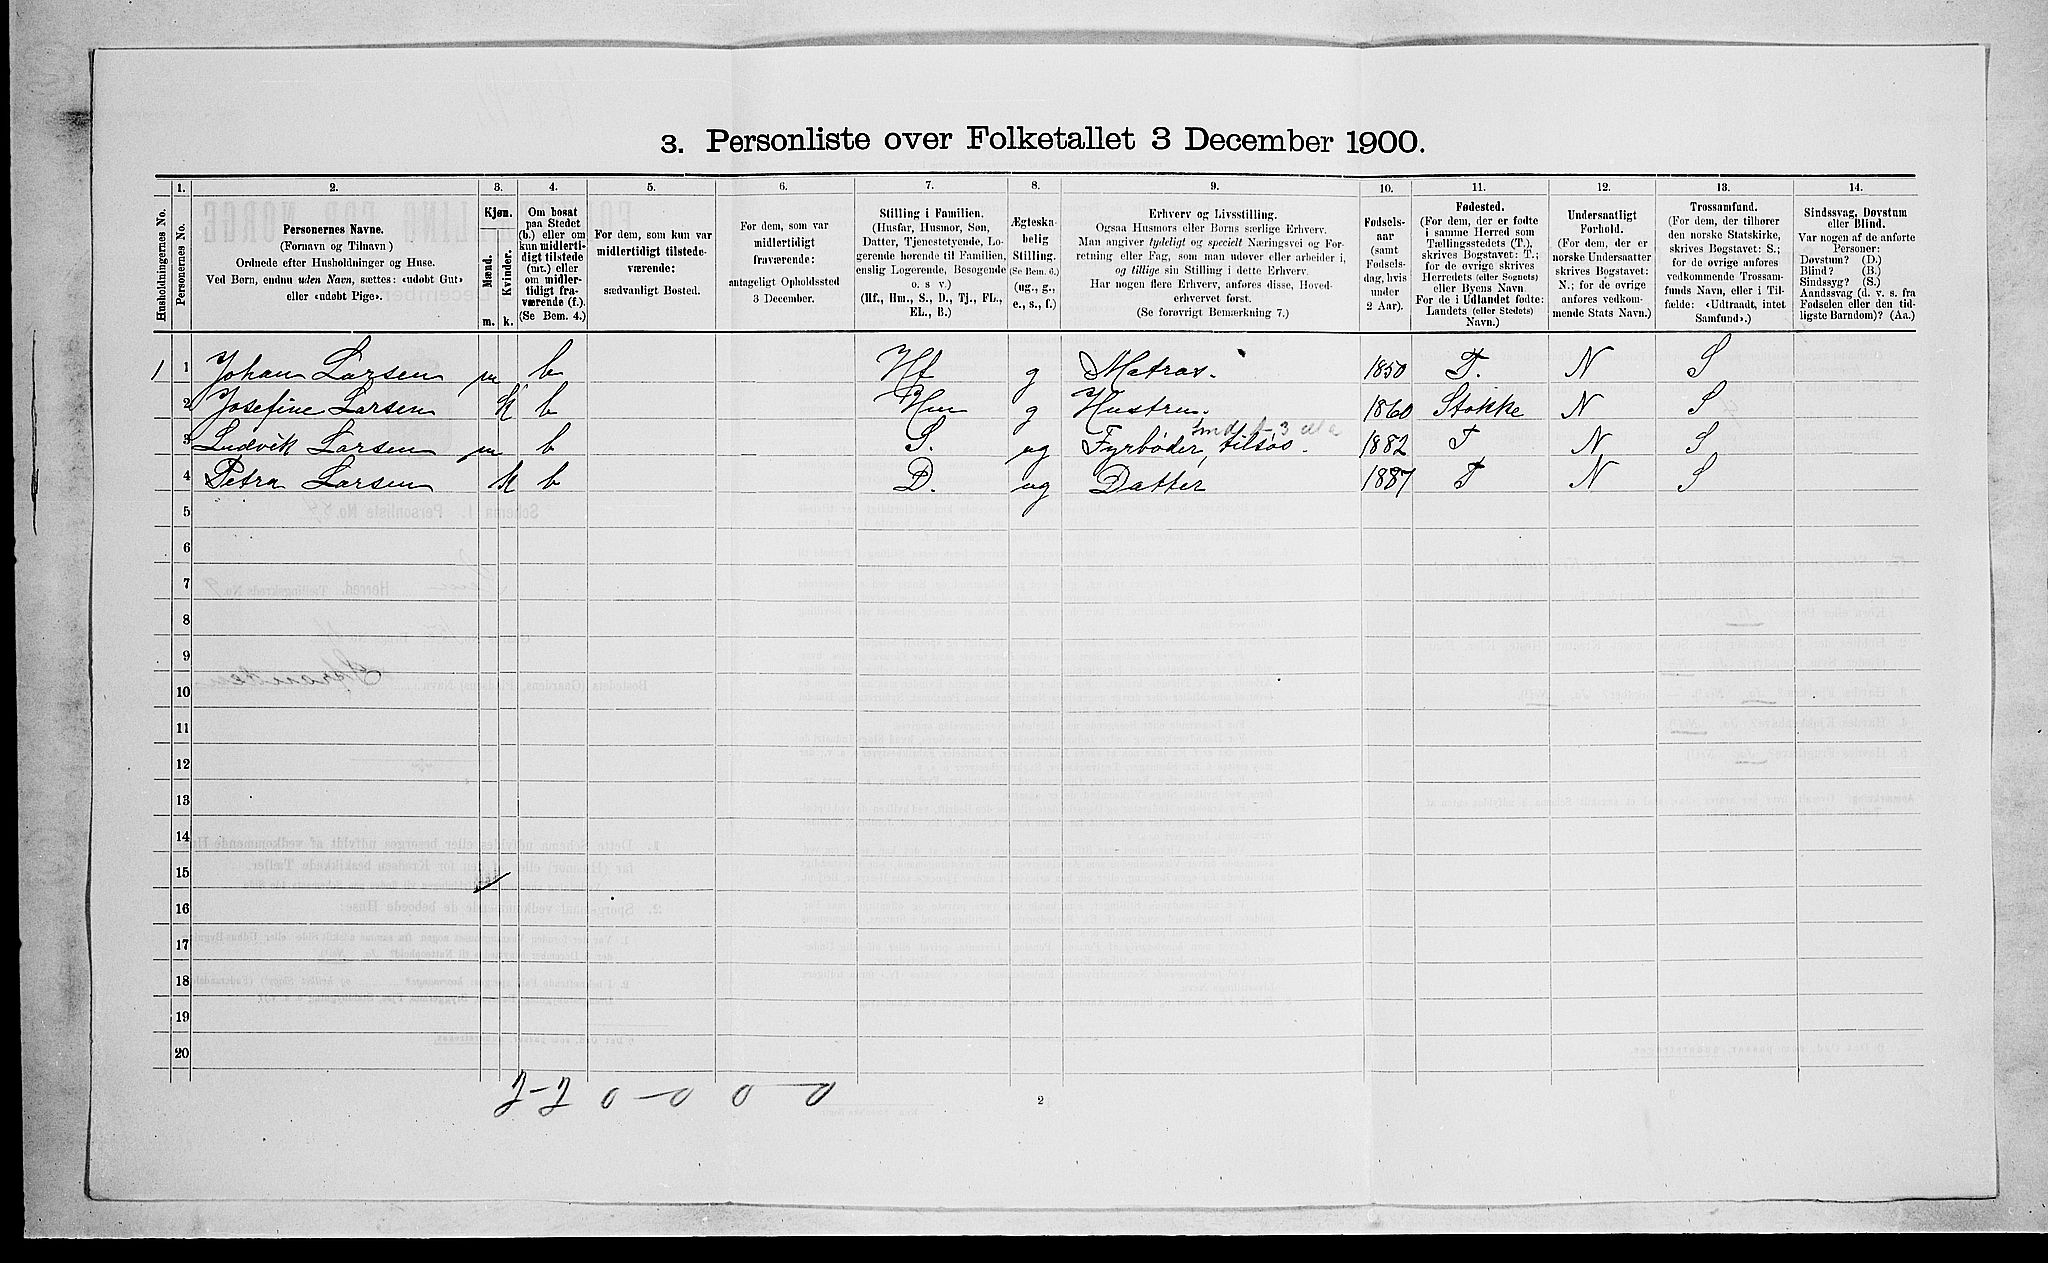 3. Personliste over Folketallet 3 December 1900.
1. 2. 3. 4. 5. 6. 7. 8. 9. 10. 11. 12. 13. 14.
Husholdningernes No.
Personernes No.
Personernes Navne.
(Fornavn og Tilnavn)
Ordnede efter Husholdninger og Huse.
Ved Børn, endnu uden Navn, sættes: «udøbt Gut»
eller «udøbt Pige».
Kjøn.
Mænd.
Kvinder.
m. k.
Om bosat
paa Stedet
(b.) eller om
kun midlerti-
digt tilstede
(mt.) eller
om midler-
tidigt fra-
værende (f.).
(Se Bem. 4.)
For dem, som kun var
midlertidigt tilstede-
værende:
sædvanligt Bosted.
For dem, som var
midlertidigt
fraværende:
antageligt Opholdssted
3 December.
Stilling i Familien.
(Husfar, Husmor, Søn,
Datter, Tjenestetyende, Lo-
gerende hørende til Familien,
enslig Logerende, Besøgende
o. s v.)
(Hf., Hm., S., D., Tj., FL.,
EL., B.)
Ægteska-
belig
Stilling.
(Se Bem. 6.)
(ug., g.,
e., s., f.)
Erhverv og Livsstilling.
Ogsaa Husmors eller Børns særlige Erhverv.
Man angiver tydeligt og specielt Næringsvei og For-
retning eller Fag, som man udøver eller arbeider i,
og tillige sin Stilling i dette Erhverv.
Har nogen flere Erhverv, anføres disse, Hoved-
erhvervet først.
(Se forøvrigt Bemærkning 7.)
Fødsels-
aar
(samt
Fødsels-
dag, hvis
under
2 Aar).
Fødested.
(For dem, der er fødte
i samme Herred som
Tællingsstedets (T.),
skrives Bogstavet: T.;
for de øvrige skrives
Herredets (eller Sognets)
eller Byens Navn
For de i Udlandet fødte:
Landets (eller Stedets)
Navn.)
Undersaatligt
Forhold.
(For dem, der er
norske Undersaatter
skrives Bogstavet:
N.; for de øvrige
anføres vedkom-
mende Stats Navn.)
Trossamfund.
(For dem, der tilhører
den norske Statskirke,
skrives Bogstavet: S.;
for de øvrige anføres
vedkommende Trossam-
funds Navn, eller i Til-
fælde: «Udtraadt, intet
Samfund».)
Sindssvag, Døvstum
eller Blind.
Var nogen af de anførte
Personer:
Døvstum? (D.)
Blind? (B.)
Sindssyg? (S.)
Aandssvag (d. v. s. fra
Fødselen eller den tid-
ligste Barndom)? (Aa.)
1 1 Johan Larsen m b Hf g Matros. 1850 T. N S
2 Josefine Larsen K b Hm g Hustru. 1860 Stokke N S
3 Ludvik Larsen m b S. ug Fyrbøder, tilsøs. 1882 T N S
4 Petra Larsen K b D. ug Datter 1887 T N S
5
6
7
8
9
10
11
12
13
14
15
16
17
18
19
20
2-2 0-0 0-0
2